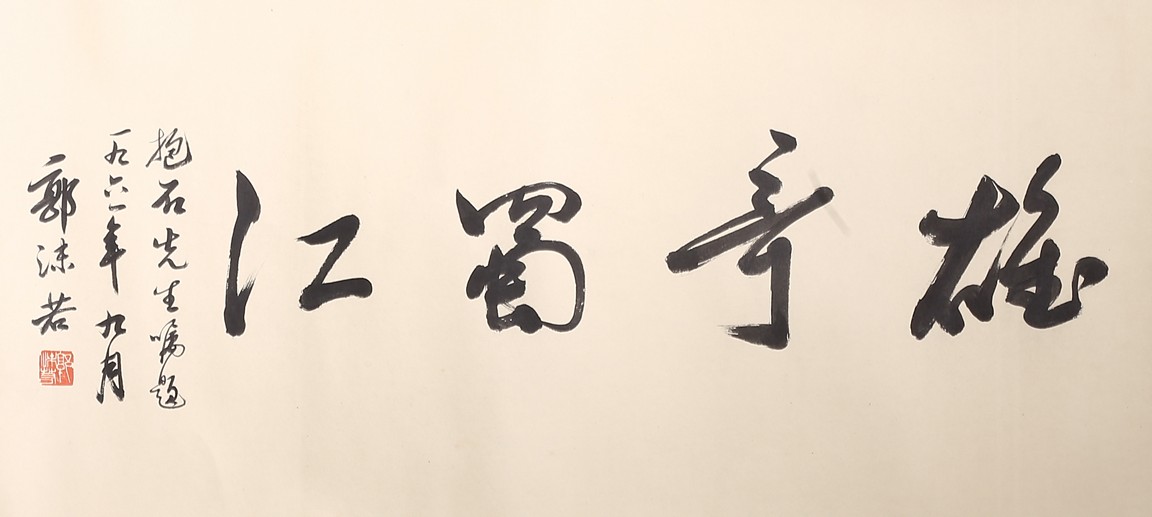 雄奇蜀江
抱石先生嘱题
一九六一年九月
郭沫若
郭沫若